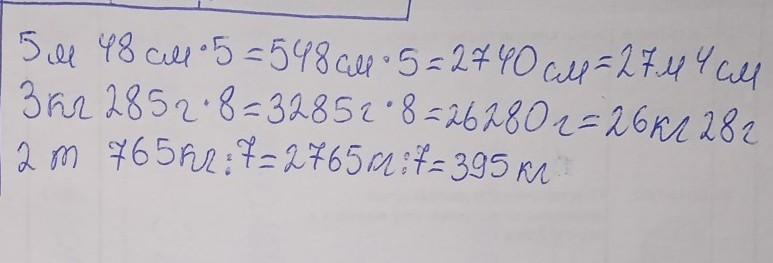 5 м 48 см·5=548 см·5=2740 см=27 м 4 см
3 кг 285 г·8=3285 г·8=26280 г=26 кг 28 г
2 т 765 кг:7=2765 кг:7=395 кг